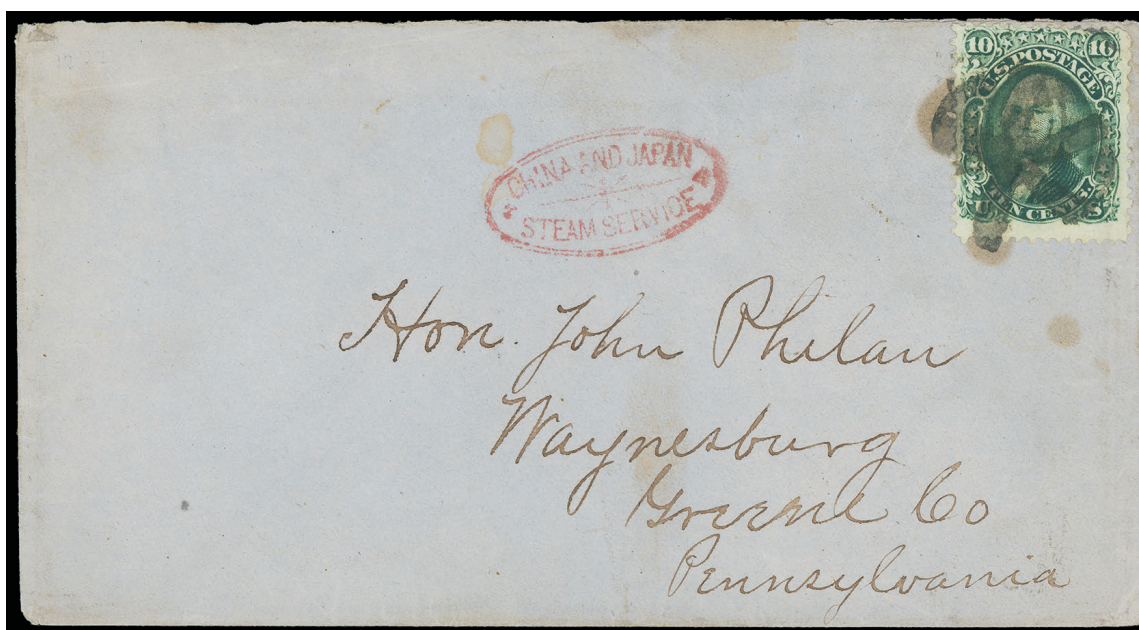 10 10
U.S. POSTAGE
TEN CENTS.
U S
CHINA AND JAPAN
STEAM SERVICE
Hon. John Philan
Waynesburg
Greene Co
Pennsylvania